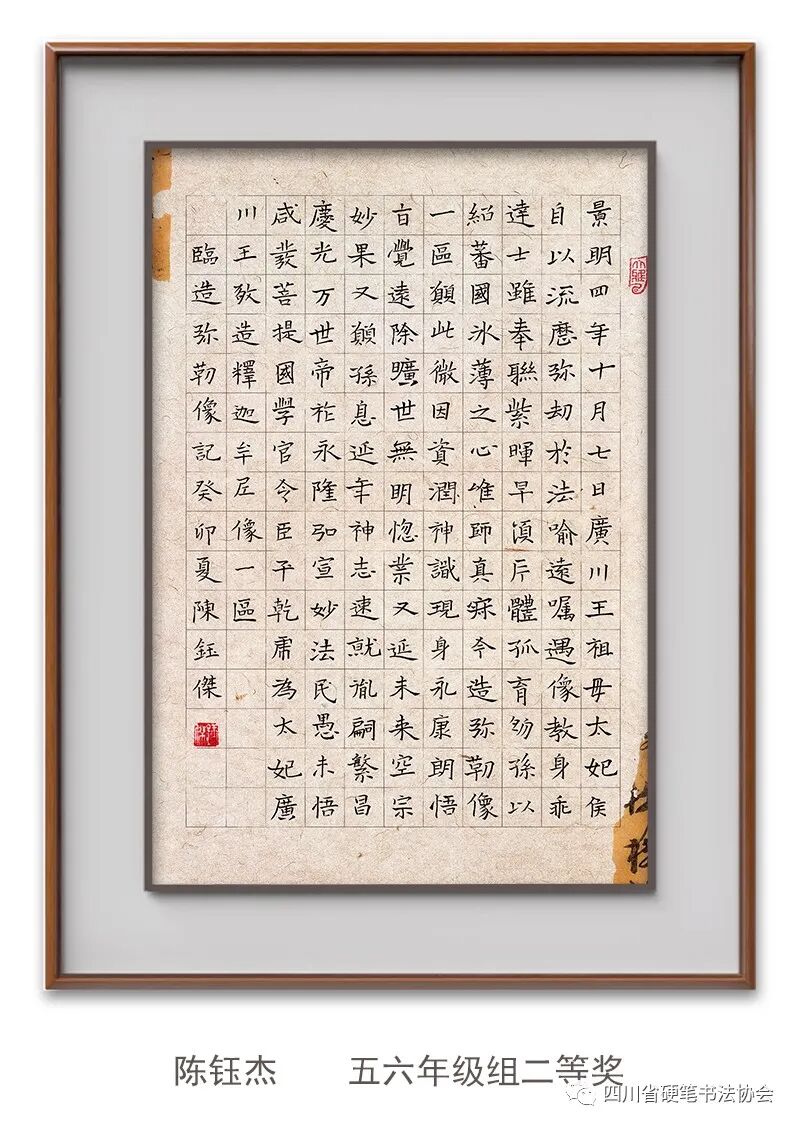 景明四年十月七日廣川王祖毋太妃侯
自以流歷弥劫於法喻遠嘱遇像教身乖
達士雖奉聯紫暉早頃片體孤育幼孫以
紹蕃國冰薄之心唯歸真寂今造弥勒像
一區願此微因資潤神識現身永康朗悟
旨覺遠除曠世無明惚業又延未来空宗
妙果又願孫息延年神志速就胤嗣繁昌
慶光万世帝祚永隆弘宣妙法民愚未悟
咸發菩提國學官令臣平乾虎為太妃廣
川王敬造釋迦牟尼像一區
臨造弥勒像記癸卯夏陳鈺傑
陈钰杰 五六年级组二等奖
四川省硬笔书法协会